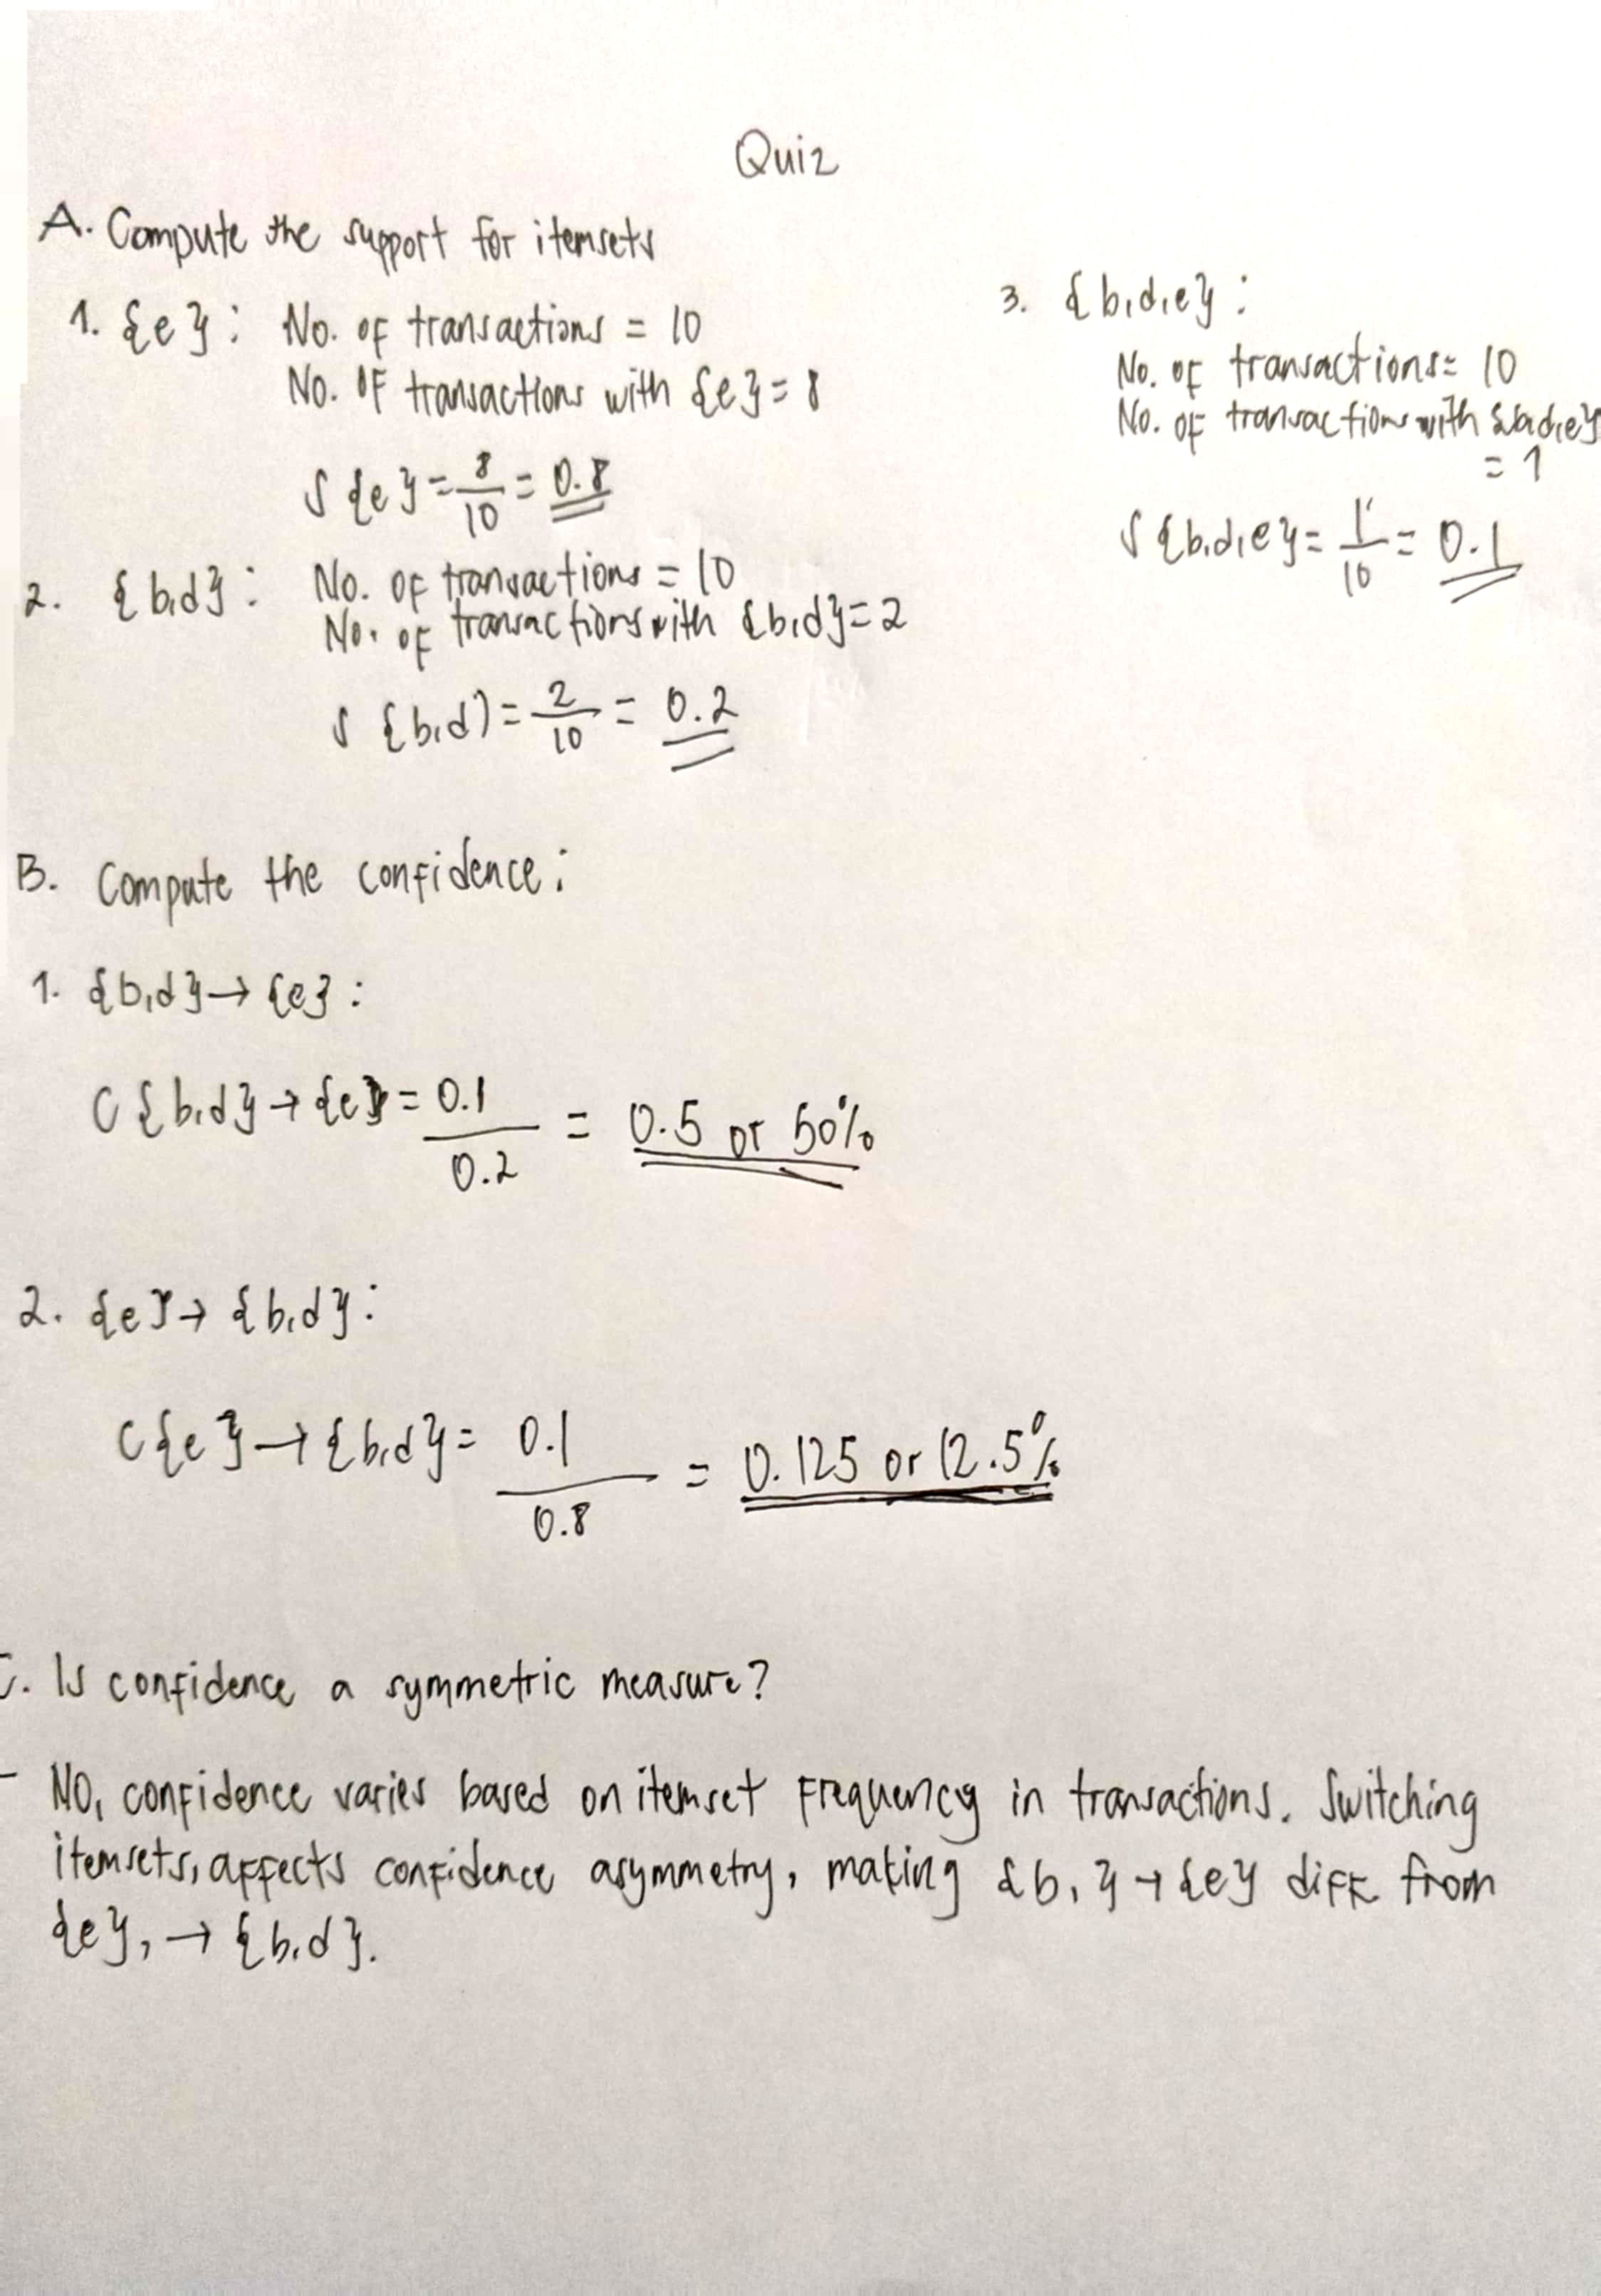 Quiz
A. Compute the support for itemsets
1. {e}: No. of transactions = 10
No. of transactions with {e} = 8
S {e} = 8/10 = 0.8
2. {b,d}: No. of transactions = 10
No. of transactions with {b,d} = 2
S {b,d) = 2/10 = 0.2
3. {b,d,e}:
No. of transactions = 10
No. of transactions with {b,d,e}
= 1
S {b,d,e} = 1/10 = 0.1
B. Compute the confidence:
1. {b,d} → {e}:
C {b,d} → {e} = 0.1/0.2 = 0.5 or 50%
2. {e} → {b,d}:
C {e} → {b,d} = 0.1/0.8 = 0.125 or 12.5%
C. Is confidence a symmetric measure?
- NO, confidence varies based on itemset frequency in transactions. Switching
itemsets, affects confidence asymmetry, making {b, } → {e} diff from
{e}, → {b,d}.